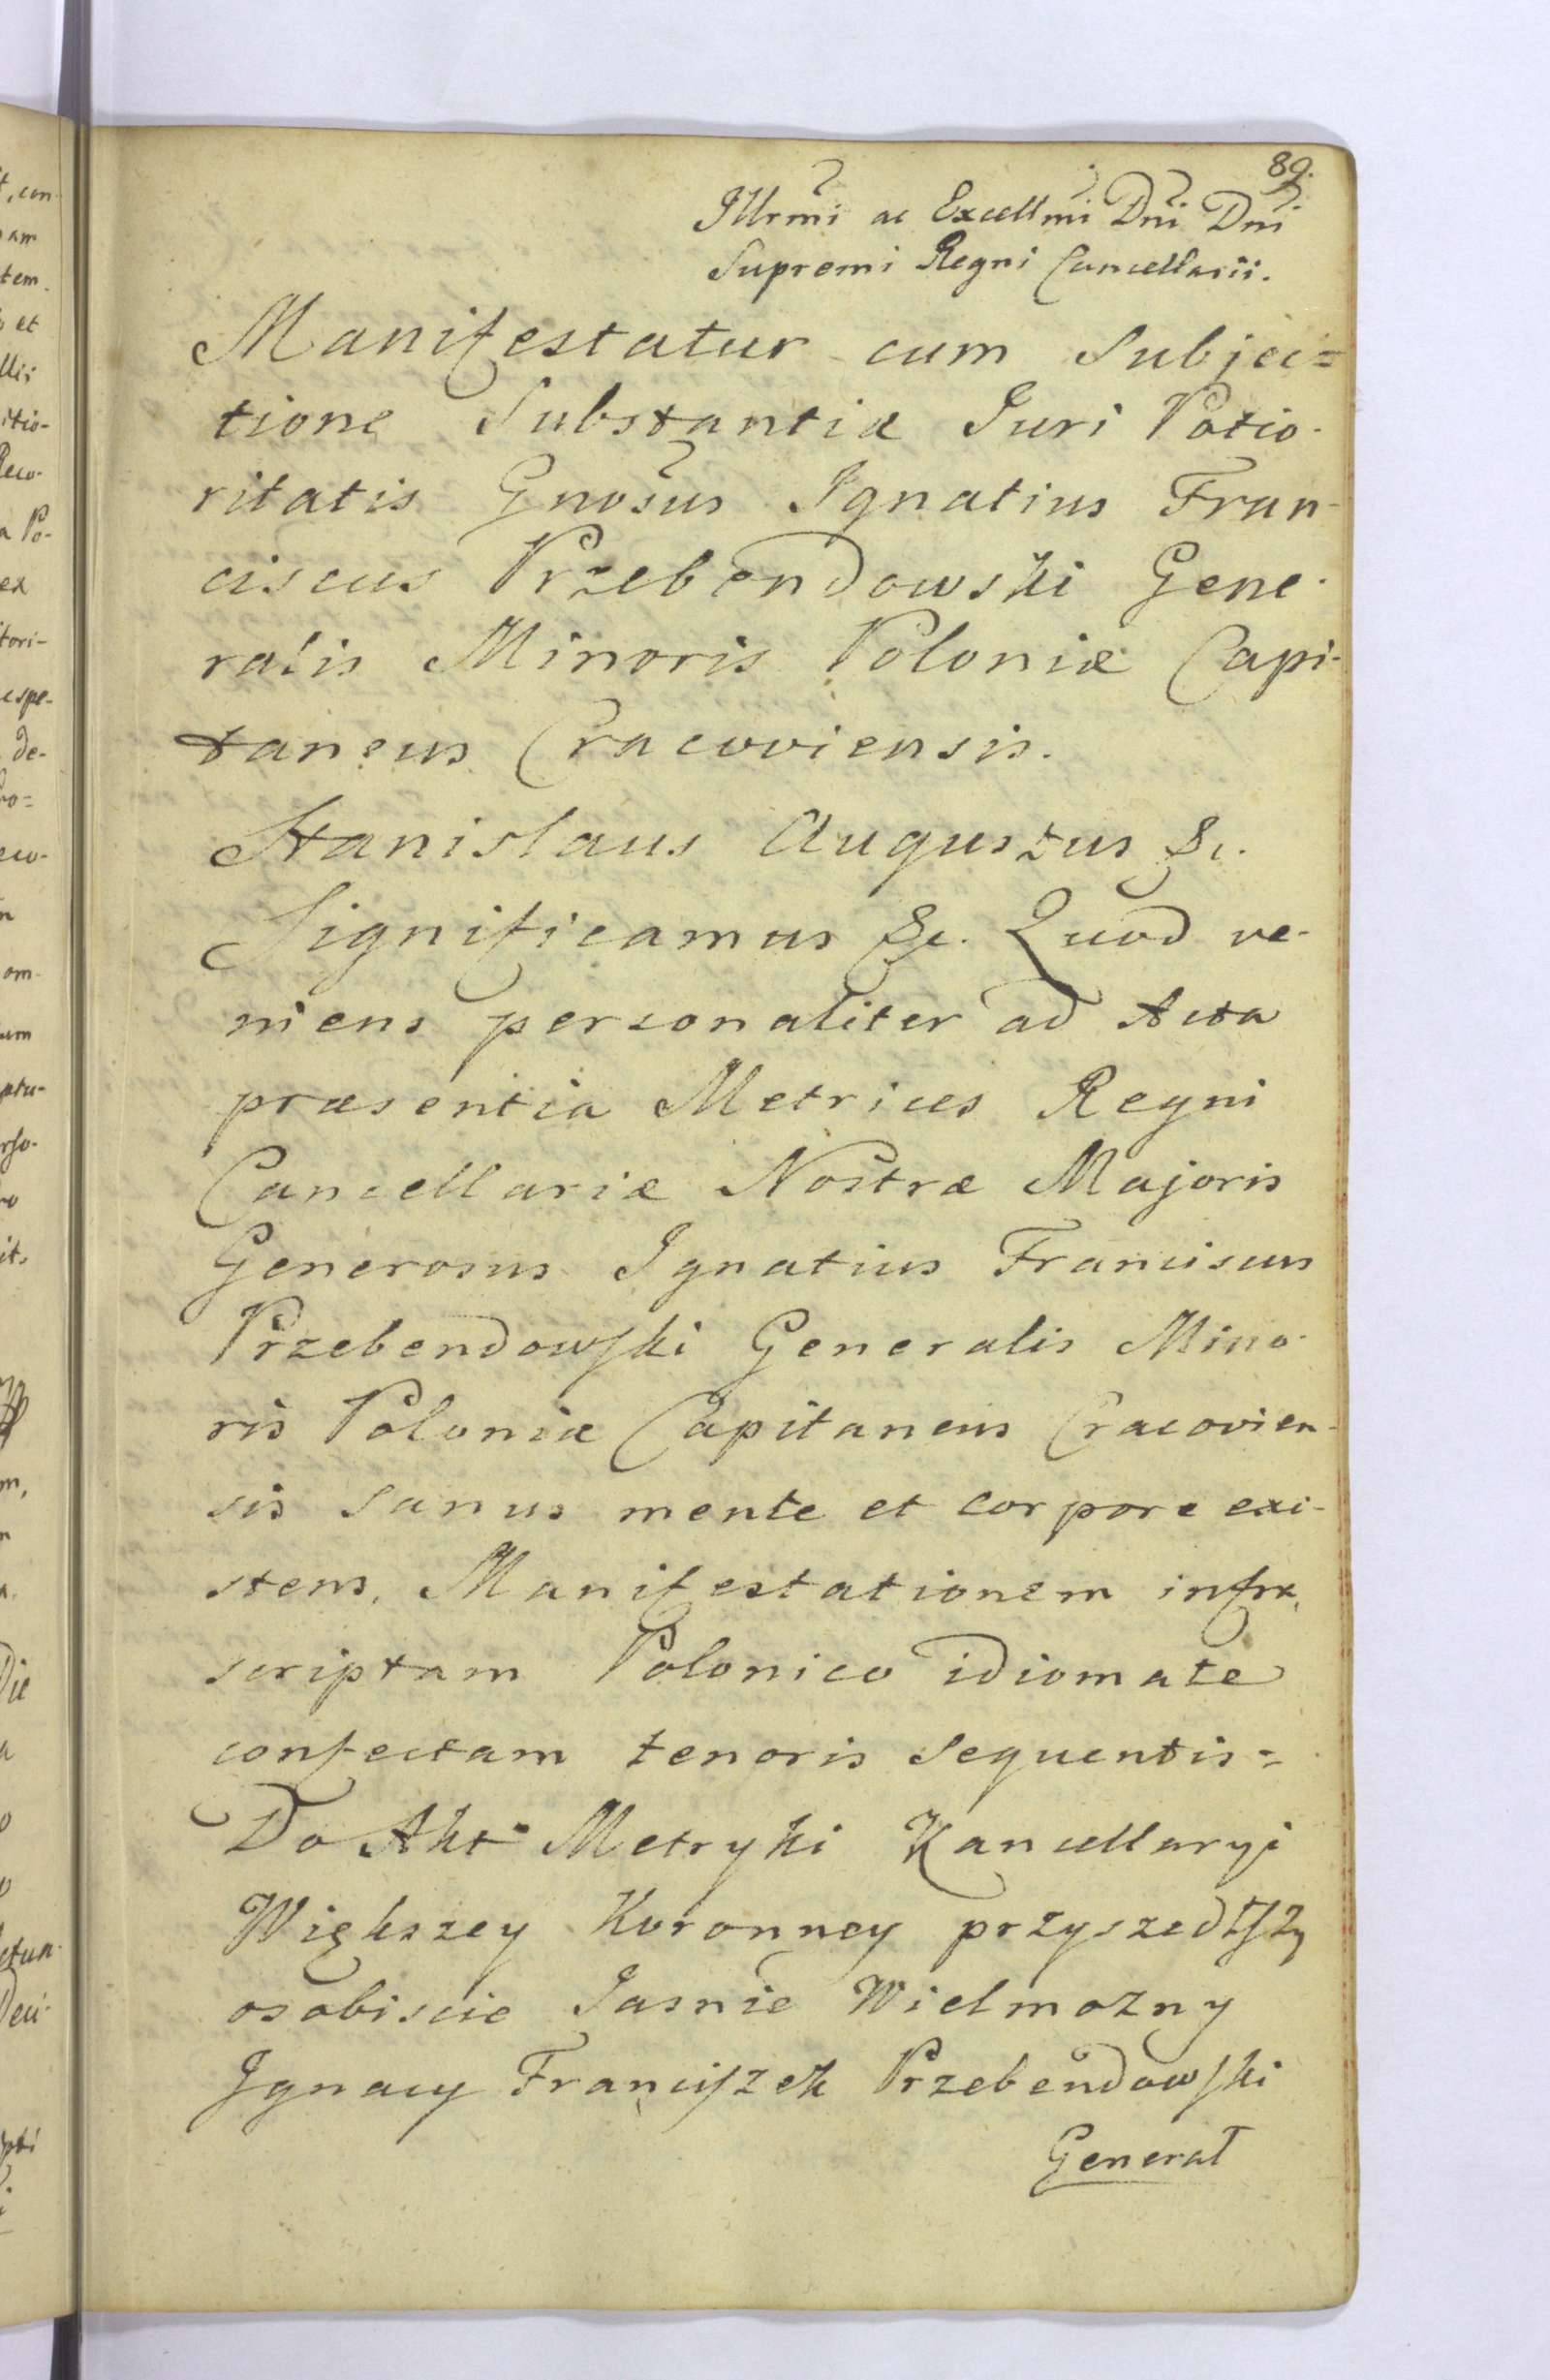 89.
Illrmi ac Excellmi Dni Dni
Supremi Regni Cancellarii.
Manifestatur cum Subjec=
tione Substantiæ Juri Potio-
ritatis Gnosus Ignatius Fran-
ciscus Przebendowski Gene-
ralis Minoris Poloniæ Capi-
taneus Cracoviensis.
Stanislaus Augustus &c.
Significamus &c. Quod ve-
niens personaliter ad Acta
præsentia Metrices Regni
Cancellariæ Nostræ Majoris
Generosus Ignatius Franciscus
Przebendowski Generalis Mino-
ris Poloniæ Capitaneus Cracovien-
sis sanus mente et corpore exi-
stens, Manifestationem infra
scriptam Polonico idiomate
confectam tenoris sequentis=
Do Akt Metryki Kancellaryi
Większey Koronney przyszedłszy
osobiscie Jasnie Wielmozny
Ignacy Franciszek Przebendowski
Generał